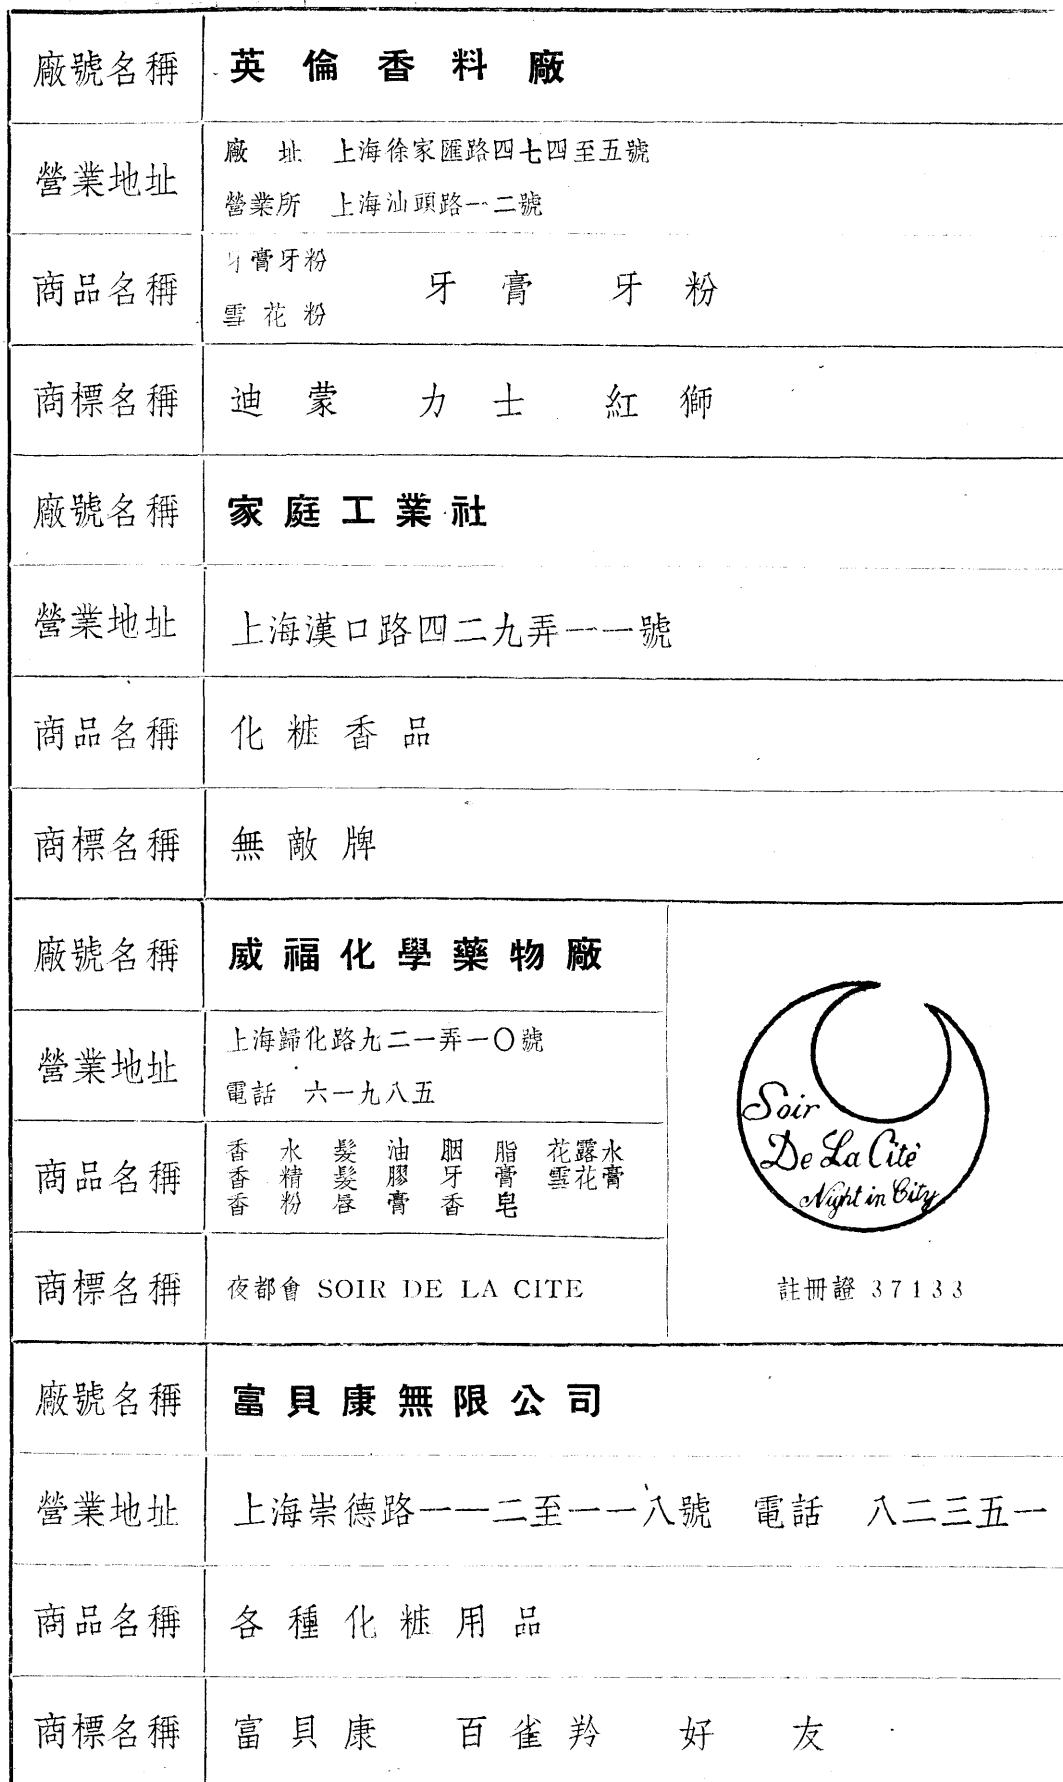 廠號名稱 英倫香料廠
營業地址 廠 址 上海徐家匯路四七四至五號
營業所 上海汕頭路一二號
商品名稱 牙膏牙粉 雪花粉 牙膏 牙粉
商標名稱 迪蒙 力士 紅獅
廠號名稱 家庭工業社
營業地址 上海漢口路四二九弄一一號
商品名稱 化粧香品
商標名稱 無敵牌
廠號名稱 威福化學藥物廠
營業地址 上海歸化路九二一弄一〇號
電話 六一九八五
商品名稱 香水 髮油 胭脂 花露水
香精 髮膠 牙膏 雲花膏
香粉 唇膏 香皂
商標名稱 夜都會 SOIR DE LA CITE
Soir
De La Cité
Night in City
註冊證 37133
廠號名稱 富貝康無限公司
營業地址 上海崇德路一一二至一一八號 電話 八二三五一
商品名稱 各種化粧用品
商標名稱 富貝康 百雀羚 好友